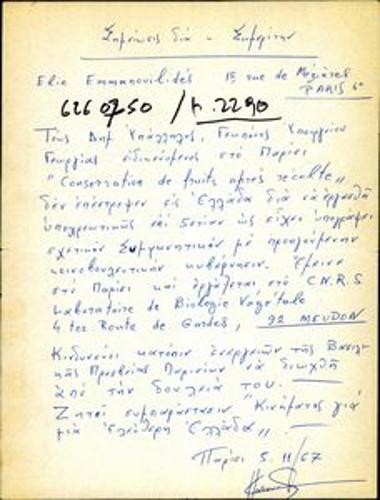 Σημείωσις διά - Σημίτην
Elie Emmanouilidés 15 rue de Mézières
PARIS 6e
626 0750 / p. 2290
Τέως Δημ. Υπάλληλος, Γεωπόνος Υπουργείου
Γεωργίας ειδικευόμενος στο Παρίσι
"Conservation de fruits après récolte"
δεν επέστρεψεν εις Ελλάδα διά να εργασθή
υποχρεωτικώς επί 5ετίαν ως είχεν υπογράψει
σχετικόν Συμφωνητικόν με προηγούμενην
κοινοβουλευτικήν κυβέρνησιν. Έμεινε
στο Παρίσι και εργάζεται στο C.N.R.S
Laboratoire de Biologie Végétale
4 ter Route de Gardes, 92 MEUDON
Κινδυνεύει κατόπιν ενεργειών της Βασιλι-
κής Πρεσβείας Παρισίων να διωχθή
από την δουλειά του.
Ζητεί συμπαράστασιν "Κινήματος για
μια ελεύθερη Ελλάδα".
Παρίσι 5.11/67